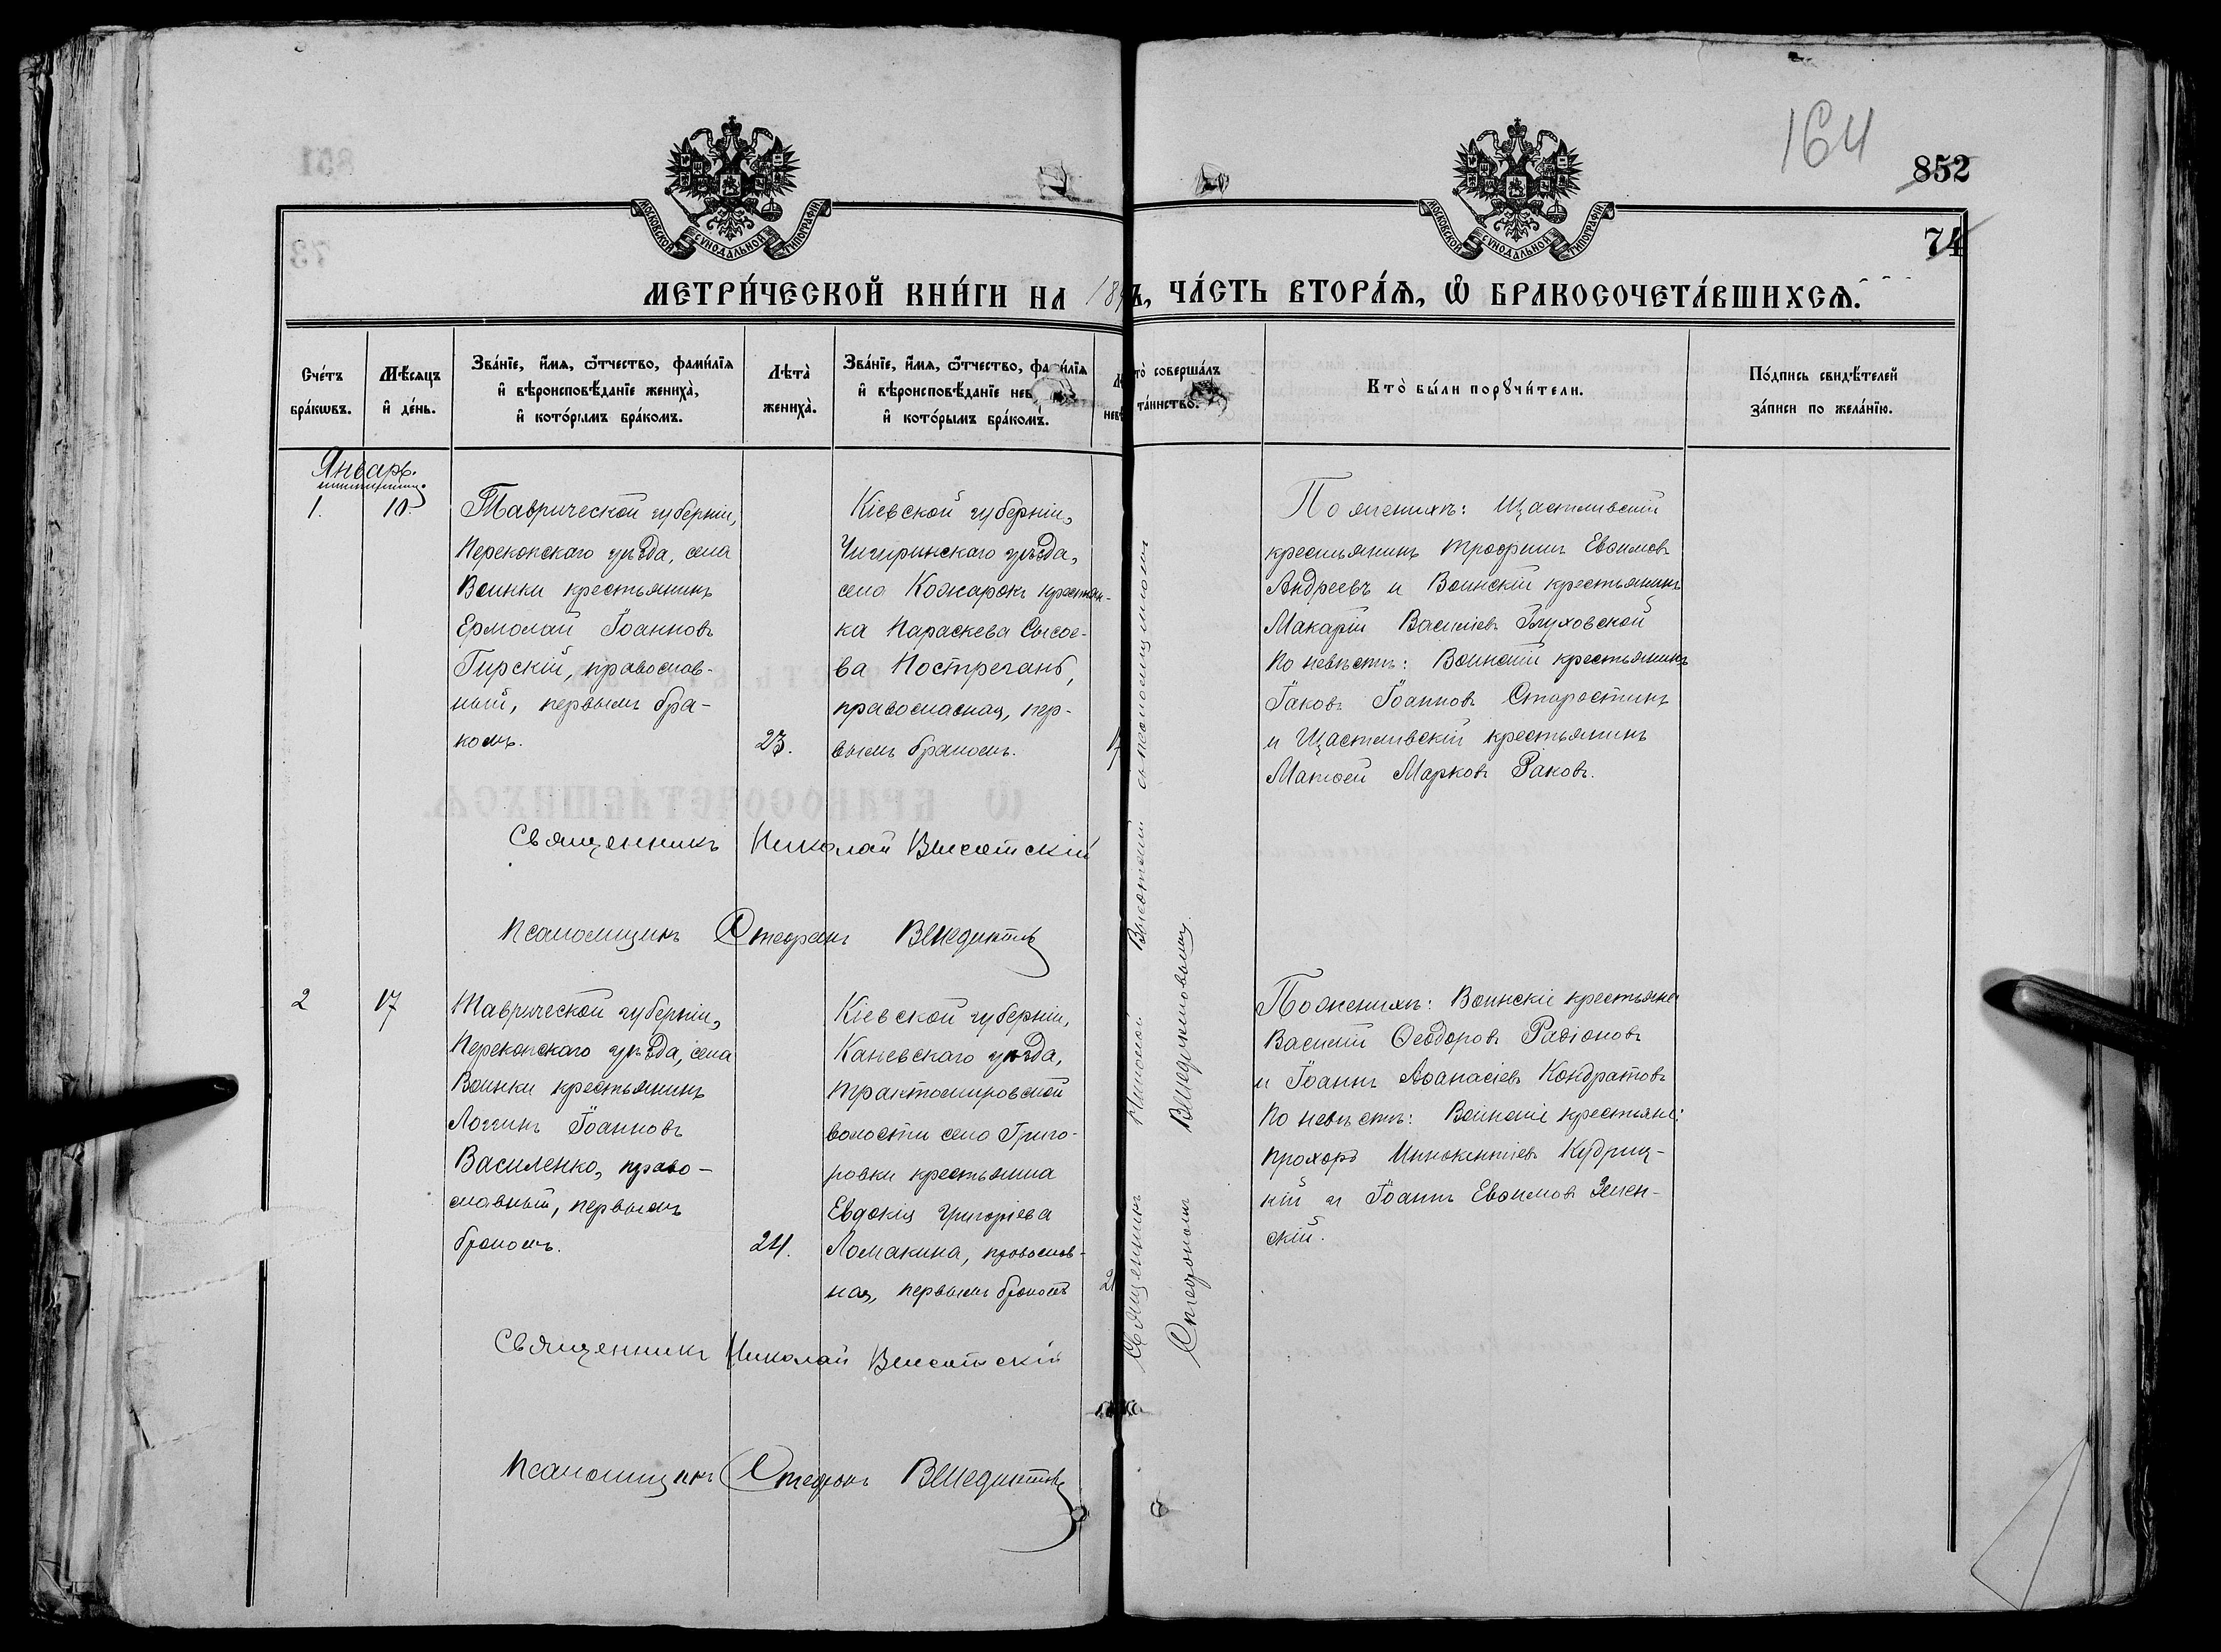 164
852
74
МОСКОВСКОЙ СУНОДАЛЬНОЙ ТИПОГРАФІИ
МОСКОВСКОЙ СУНОДАЛЬНОЙ ТИПОГРАФІИ
МЕТРИ́ЧЕСКОЙ КНИ́ГИ НА 189 Ъ, ЧА́СТЬ ВТОРА́Ѧ, Ѿ БРАКОСОЧЕТА́ВШИХСѦ.
Сче́тъ бра́кѡвъ.
Мѣ́сѧцъ и҆ де́нь.
Зва́нїе, и҆́мѧ, ѻ҆́тчество, фами́лїѧ и҆ вѣроисповѣ́данїе жениха̀, и҆ кото́рымъ бра́комъ.
Лѣта̀ жениха̀.
Зва́нїе, и҆́мѧ, ѻ҆́тчество, фами́лїѧ и҆ вѣроисповѣ́данїе нев и҆ кото́рымъ бра́комъ.
то̀ соверша́лъ та́инство.
Кто̀ бы́ли порꙋчи́тели.
По́дпись свидѣ́телей за́писи по жела́нїю.
Январь.
1.
10.
Таврической губерніи,
Перекопскаго уѣзда, села
Воинки крестьянинъ
Ермолай Іоанновъ
Гирскій, православ-
ный, первымъ бра-
комъ.
23.
Кіевской губерніи,
Чигиринскаго уѣзда,
села Кожарокъ крестьян-
ка Параскева Сысое-
ва Постреганъ,
православная, пер-
вымъ бракомъ.
По женихѣ: Щастливскій
крестьянинъ Трофимъ Евѳимовъ
Андреевъ и Воинскій крестьянинъ
Макарій Василіевъ Глуховской
По невѣстѣ: Воинскій крестьянинъ
Іаковъ Іоанновъ Старостинъ
и Щастливскій крестьянинъ
Матѳей Марковъ Раковъ.
Священникъ Николай Высотскій
Псаломщикъ Стефанъ Венедиктовъ
2
17
Таврической губерніи,
Перекопскаго уѣзда, села
Воинки крестьянинъ
Логгинъ Іоанновъ
Василенко, право-
славный, первымъ
бракомъ.
24.
Кіевской губерніи,
Каневскаго уѣзда,
Трактомировской
волости села Григо-
ровки крестьянка
Евдокія Григоріева
Ломакина, православ-
ная, первымъ бракомъ
2
Священникъ Николай Высотскій съ псаломщикомъ
Стефаномъ Венедиктовымъ.
По женихѣ: Воинскіе крестьяне
Василій Ѳеодоровъ Радіоновъ
и Іоаннъ Аѳанасіевъ Кондратовъ
По невѣстѣ: Воинскіе крестьяне:
Прохоръ Иннокентіевъ Кудриц-
кій и Іоаннъ Евѳимовъ
скій.
Священникъ Николай Высотскій
Псаломщикъ Стефанъ Венедиктовъ